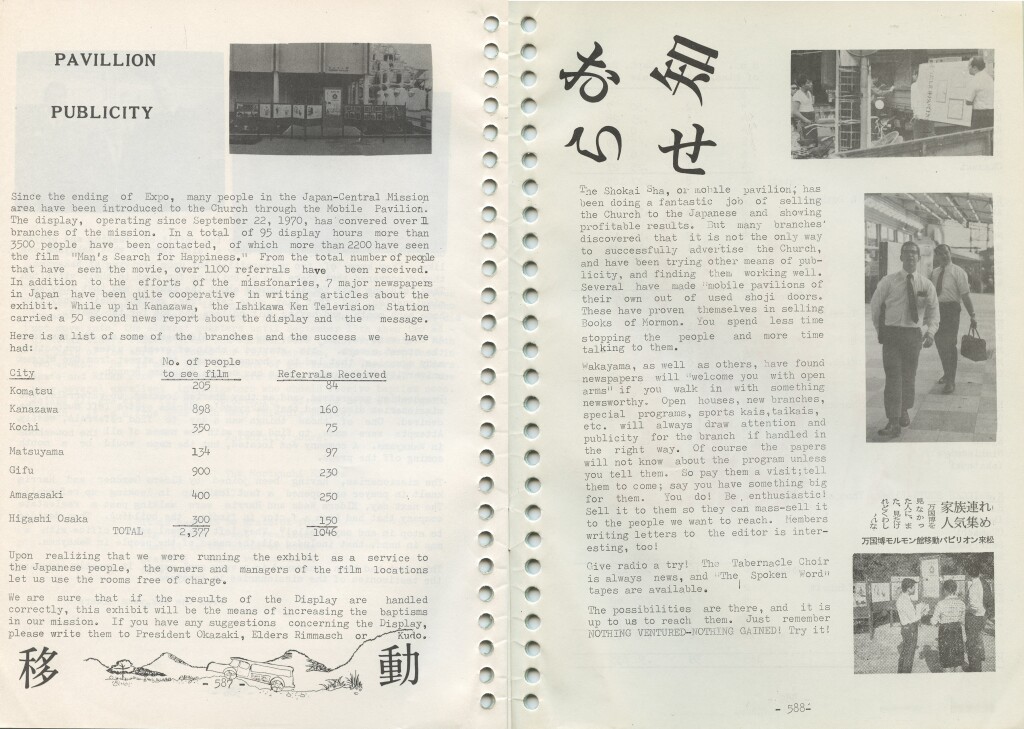 PAVILLION
PUBLICITY
Since the ending of Expo, many people in the Japan-Central Mission
area have been introduced to the Church through the Mobile Pavilion.
The display, operating since September 22, 1970, has convered over 11
branches of the mission. In a total of 95 display hours more than
3500 people have been contacted, of which more than 2200 have seen
the film "Man's Search for Happiness." From the total number of people
that have seen the movie, over 1100 referrals have been received.
In addition to the efforts of the missfonaries, 7 major newspapers
in Japan have been quite cooperative in writing articles about the
exhibit. While up in Kanazawa, the Ishikawa Ken Television Station
carried a 50 second news report about the display and the message.
Here is a list of some of the branches and the success we have
had:
No. of people
City to see film Referrals Received
Komatsu 205 84
Kanazawa 898 160
Kochi 350 75
Matsuyama 134 97
Gifu 900 230
Amagasaki 400 250
Higashi Osaka 300 150
TOTAL 2,377 1046
Upon realizing that we were running the exhibit as a service to
the Japanese people, the owners and managers of the film locations
let us use the rooms free of charge.
We are sure that if the results of the Display are handled
correctly, this exhibit will be the means of increasing the baptisms
in our mission. If you have any suggestions concerning the Display,
please write them to President Okazaki, Elders Rimmasch or Kudo.
移動
- 587 -
お知らせ
The Shokai Sha, or mobile pavilion, has
been doing a fantastic job of selling
the Church to the Japanese and showing
profitable results. But many branches
discovered that it is not the only way
to successfully advertise the Church,
and have been trying other means of pub-
licity, and finding them working well.
Several have made mobile pavilions of
their own out of used shoji doors.
These have proven themselves in selling
Books of Mormon. You spend less time
stopping the people and more time
talking to them.
Wakayama, as well as others, have found
newspapers will "welcome you with open
arms" if you walk in with something
newsworthy. Open houses, new branches,
special programs, sports kais,taikais,
etc. will always draw attention and
publicity for the branch if handled in
the right way. Of course the papers
will not know about the program unless
you tell them. So pay them a visit;tell
them to come; say you have something big
for them. You do! Be enthusiastic!
Sell it to them so they can mass-sell it
to the people we want to reach. Members
writing letters to the editor is inter-
esting, too!
Give radio a try! The Tabernacle Choir
is always news, and "The Spoken Word"
tapes are available.
The possibilities are there, and it is
up to us to reach them. Just remember
NOTHING VENTURED-NOTHING GAINED! Try it!
家族連れ
人気集め
万国博モルモン館移動パビリオン来松
- 588-